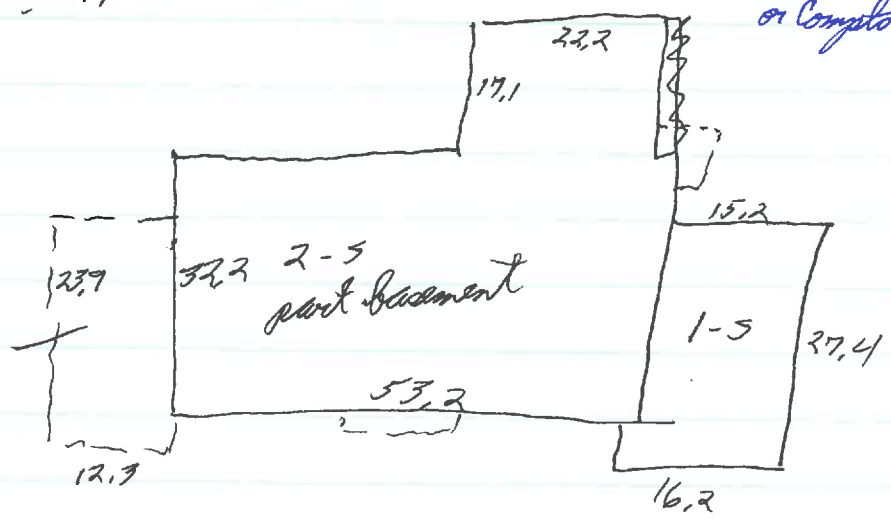 or Compto
22,2
17,1
15,2
23,9
32,2
2-S
part basement
1-S
27,4
53,2
12,3
16,2